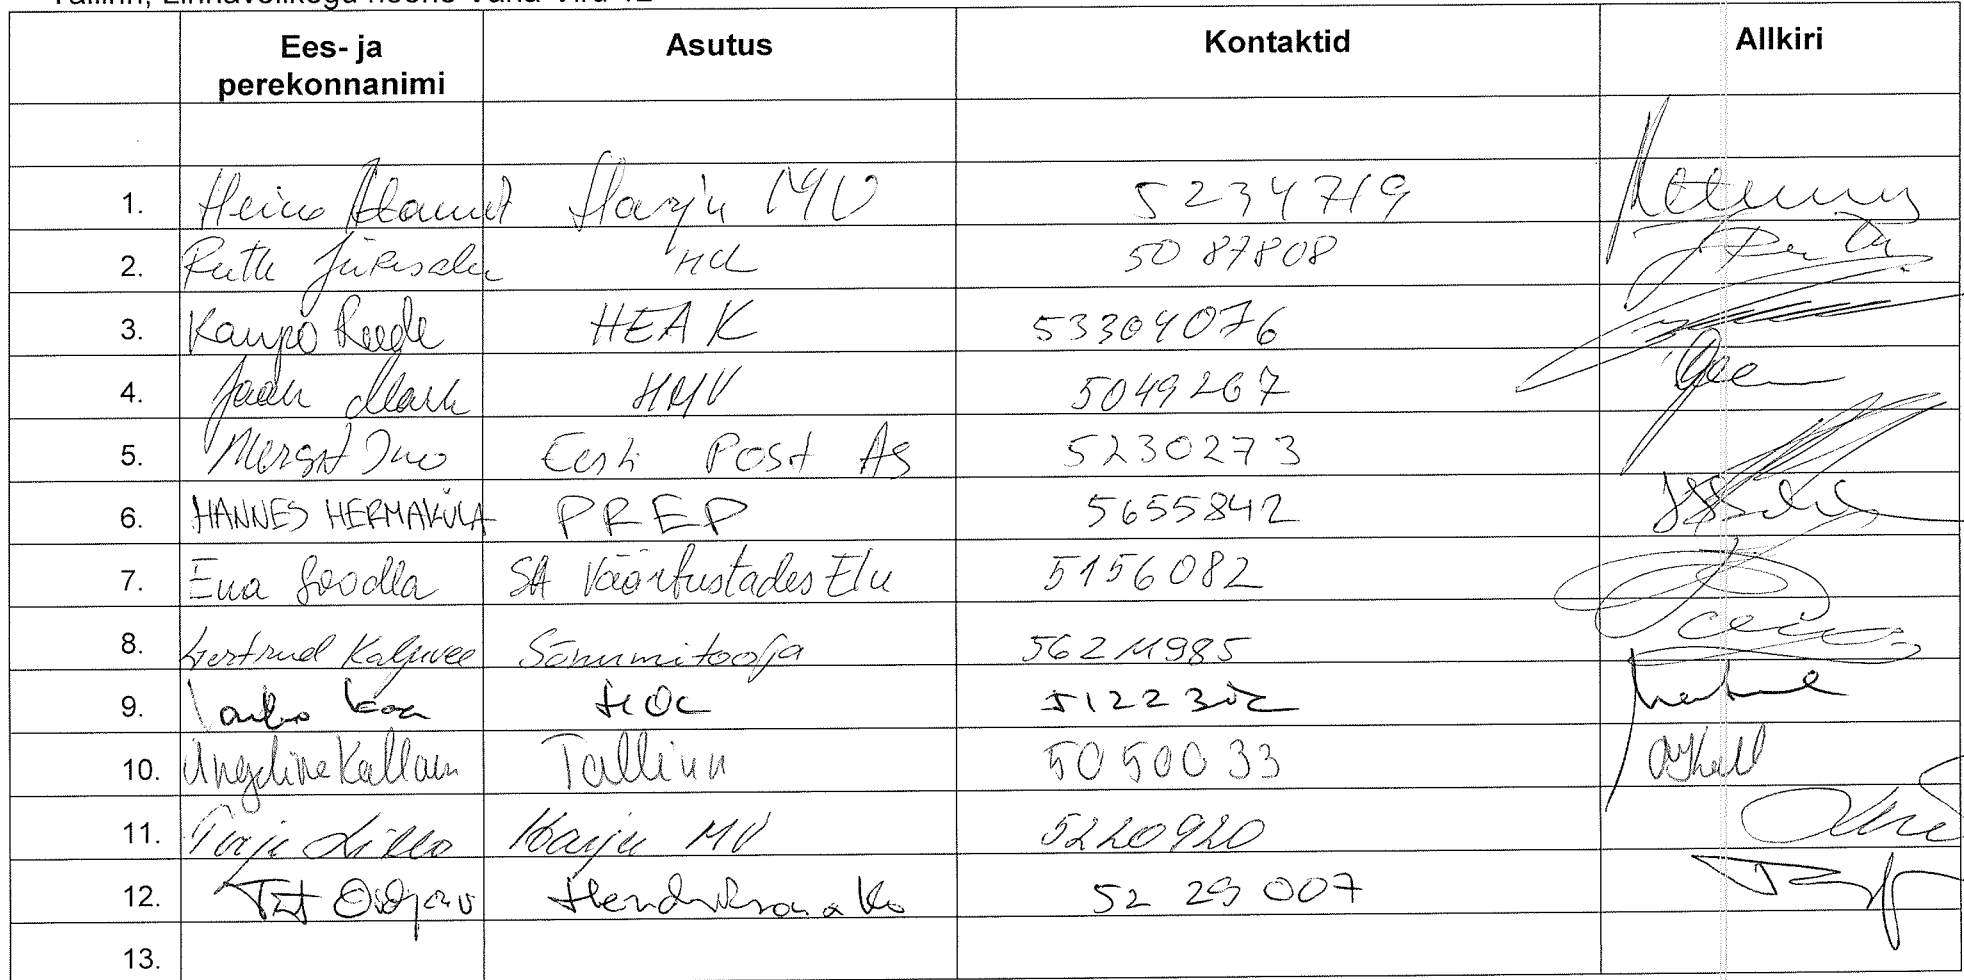 Tallinn, Linnavolikogu hoone Vana-Viru 12
Ees- ja perekonnanimi Asutus Kontaktid Allkiri
1. Heino Alaniit Harju MV 5234719
2. Ruth Jürisalu HOL 5087808
3. Kaupo Reede HEAK 53304076
4. Jaak Mark HMV 5049267
5. Mergit Ino Eesti Post AS 5230273
6. HANNES HERMAKÜLA PREP 5655842
7. Ena Soodla SA Väärtustades Elu 5156082
8. Gertrud Kaljuvee Sõnumitooja 56211985
9. HOL
10. Angelina Kallam Tallinn 5050033
11. Harju MV 5220920
12. Tiit Hendrikson & Ko 52 29 007
13.